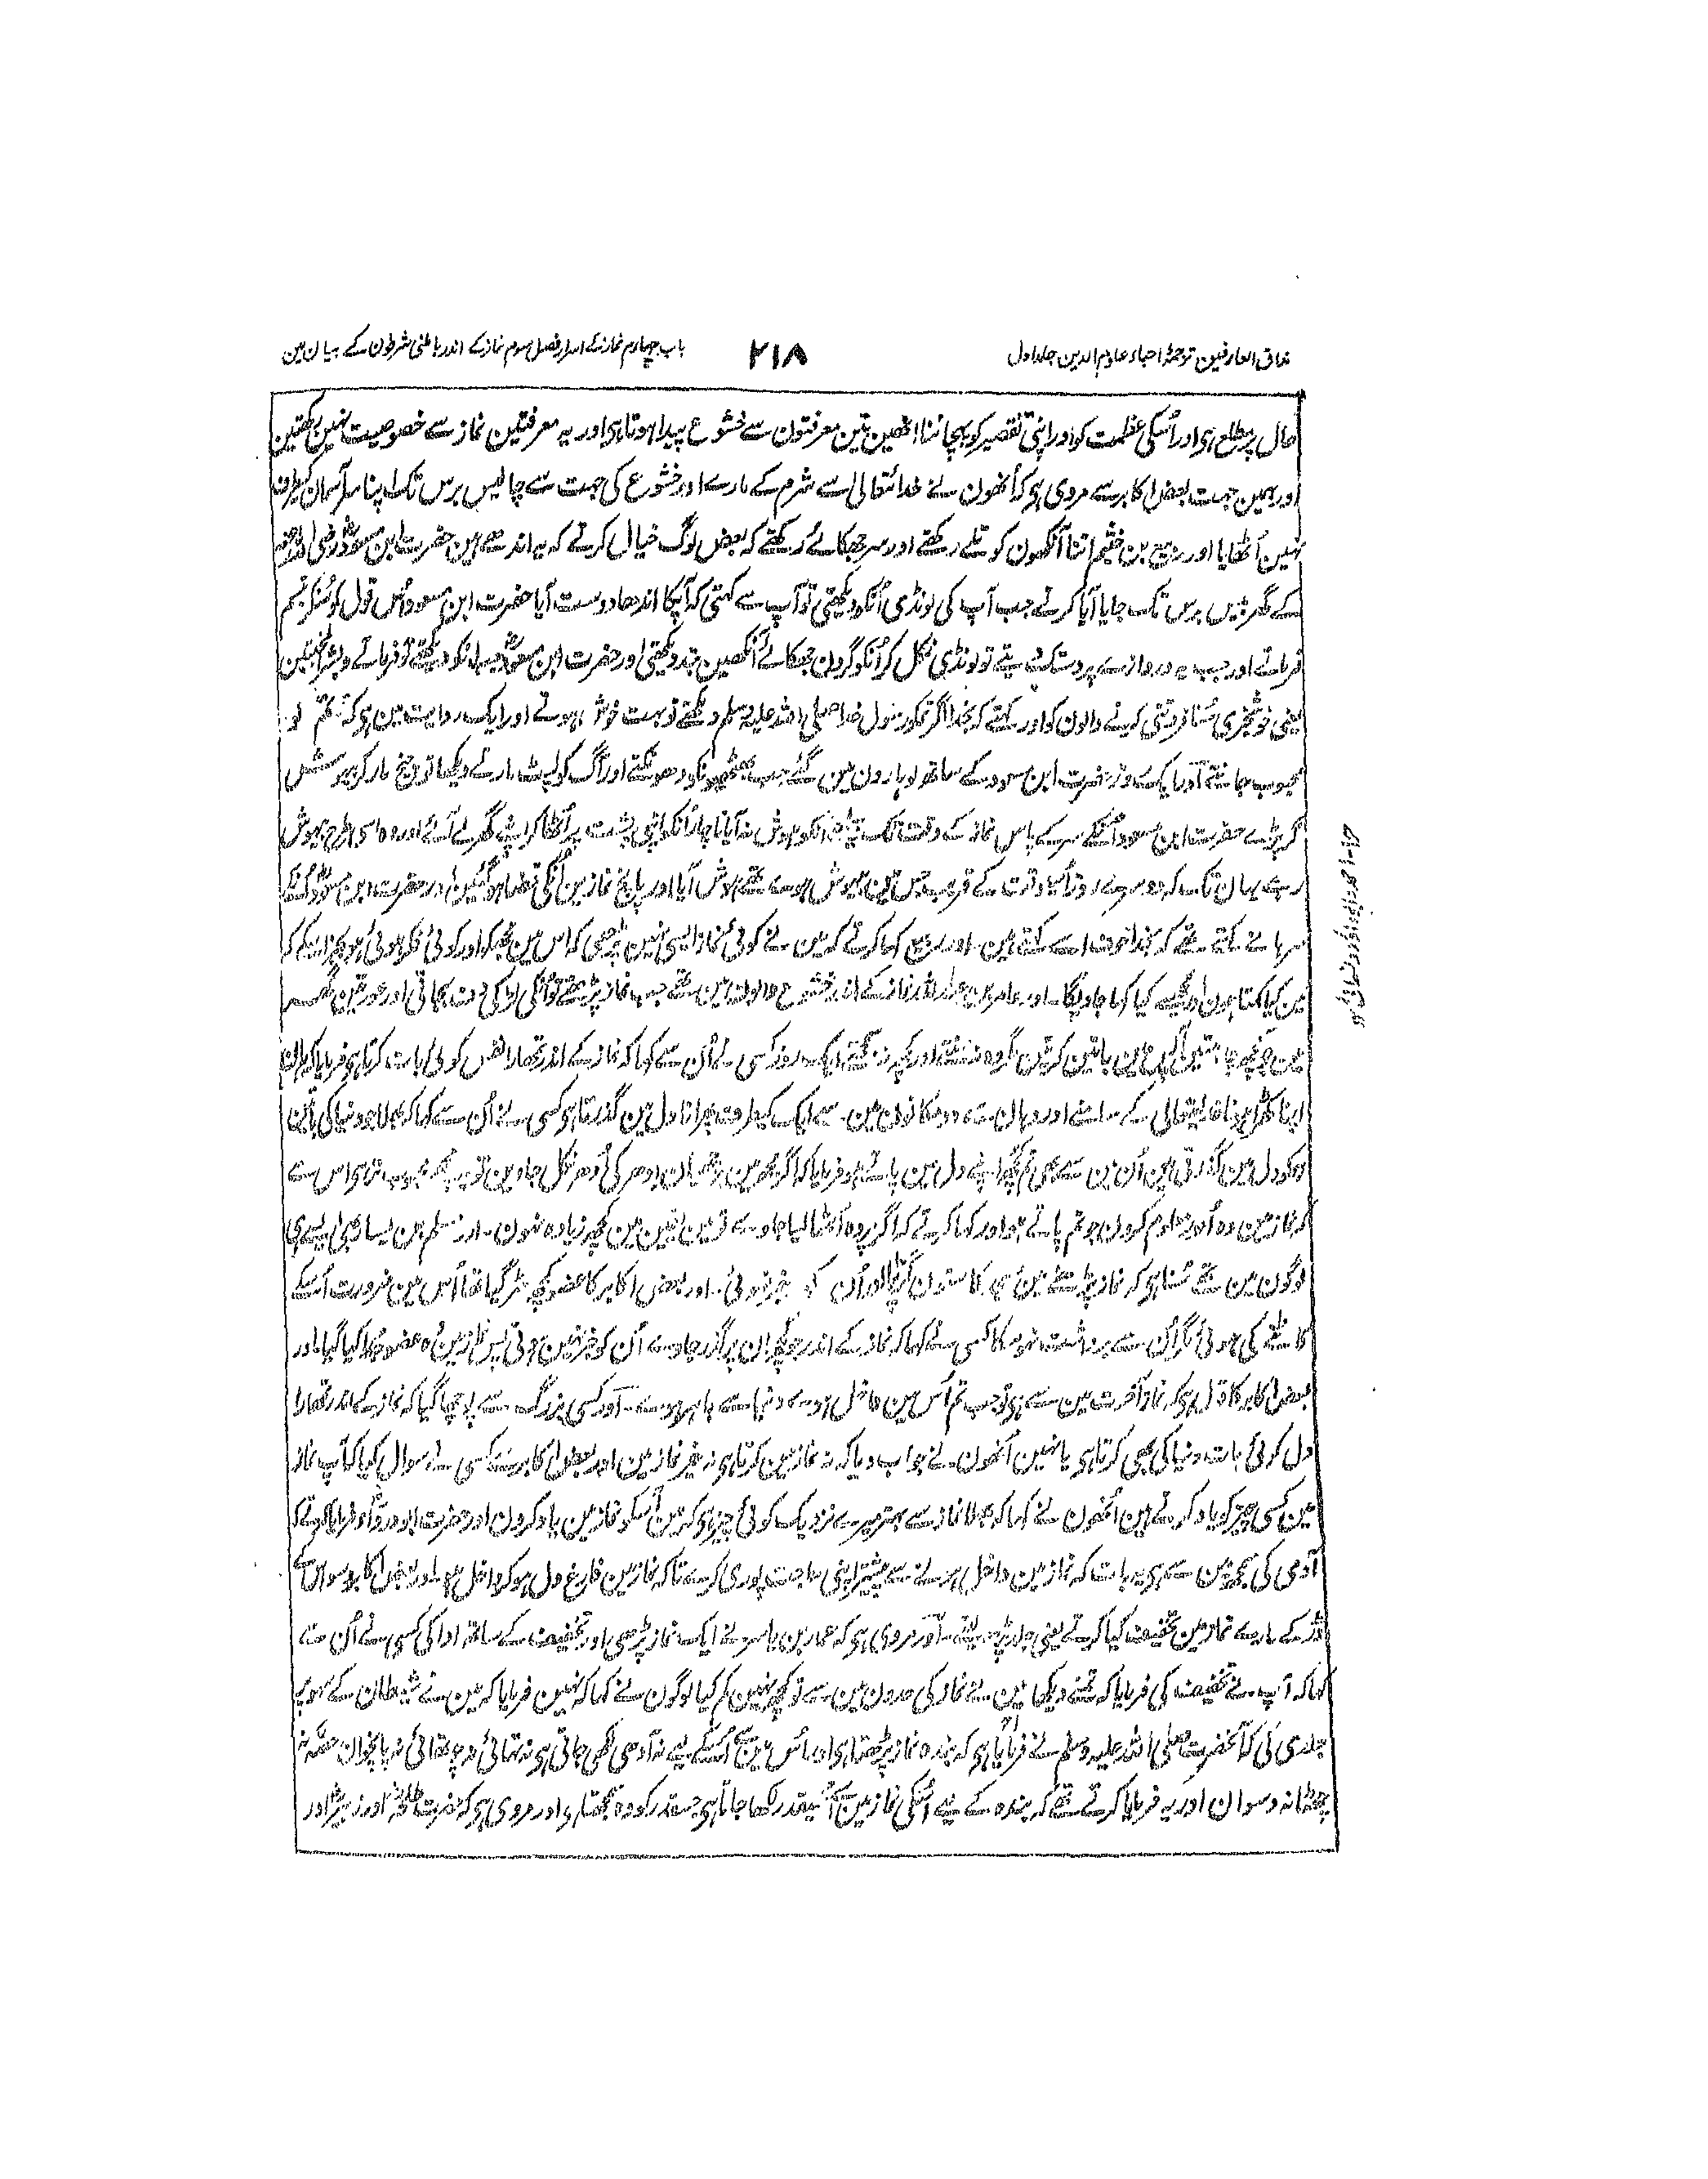 مذاق العارفین ترجمۂ احیاء علوم الدین جلد اول
۲۱۸
باب چہارم نماز کے اسرار فصل سوم نماز کے اندر باطنی شرطون کے بیان مین
حال پر مطلع ہی اور اُسکی عظمت کو اور اپنی تقصیر کو پہچاننا انھین تین معرفتون سے خشوع پیدا ہوتا ہی اور یہ معرفتین نماز سے خصوصیت نہین رکھتین
اور ہمین جہت بعض اکابر سے مروی ہی کہ اُنھون نے خدا تعالی سے شرم کے مارے اور خشوع کی جہت سے چالیس برس تک اپنا سر آسمان کیطرف
نہین اُٹھایا اور ربیع بن خثیم اتنا آنکھون کو تلے رکھتے اور سر جھکائے رکھتے کہ بعض لوگ خیال کرتے کہ یہ اندھے ہین حضرت ابن مسعودؓ رضی اللہ عنہ
کے گھر بیس برس تک جایا آیا کرتے جب آپ کی لونڈی اُنکو دیکھتی تو آپ سے کہتی کہ آپکا اندھا دوست آیا حضرت ابن مسعود اُس قول کو سُنکر تبسم
فرماتے اور جب یہ دروازے پر دستک دیتے تو لونڈی نکل کر اُنکو گردن جھکائے آنکھین بند دیکھتی اور حضرت ابن مسعودؓ جب انکو دیکھتے تو فرماتے وبشر المخبتین
یعنی خوشخبری سُنا فروتنی کرنے والون کو اور کہتے کہ بخدا اگر تمکو رسول خدا صلی اللہ علیہ وسلم دیکھتے تو بہت خوش ہوتے اور ایک روایت مین ہی کہ تم کو
محبوب جانتے اور ایک روز حضرت ابن مسعود کے ساتھ لوہارون مین گئے جب بھٹیونکو دھونکتے اور آگ کو لپٹ مارتے دیکھا تو چیخ مار کر بیہوش
گر پڑے حضرت ابن مسعود اُنکے سر کے پاس نماز کے وقت تک بیٹھے انکو ہوش نہ آیا ناچار اُنکو اپنی پشت پر اُٹھا کر اپنے گھر لے آئے اور وہ اسی طرح بیہوش
رہے یہان تک کہ دوسرے روز اُس وقت کے قریب جس مین بیہوش ہوئے تھے ہوش آیا اور پانچ نمازین اُنکی قضا ہو گئین اور حضرت ابن مسعودؓ اُنکے
سرہانے کہتے تھے کہ بخدا خوف اسے کہتے ہین اور ربیع کہا کرتے کہ مین نے کوئی نماز ایسی نہین پڑھی کہ اس مین مجھکو اور کوئی فکر ہوئی ہو بجز اسکے کہ
مین کیا کہتا ہون اور مجھسے کیا کہا جاویگا اور عامر بن عبداللہ نماز کے اندر خشوع والون مین تھے جب نماز پڑھتے تو اُنکی لڑکی دف بجاتی اور عورتین گھر
مین جو کچھ چاہتین آپس مین باتین کرتین مگر وہ نہ سنتے اور کچھ نہ سمجھتے ایک روز کسی نے اُن سے کہا کہ نماز کے اندر تمھارا نفس کوئی بات کرتا ہی فرمایا کہ ہان
اپنا کھڑا ہونا خدا یتعالی کے سامنے اور وہان سے دو مکانون مین سے ایک کیطرف پھرنا دل مین گذرتا ہی کسی نے اُن سے کہا کہ بھلا جو دنیا کی باتین
ہمکو دل مین گذرتی ہین اُن مین سے بھی تم کچھ اپنے دل مین پاتے ہو فرمایا کہ اگر مجھ مین برچھیان ادھر کی اُدھر نکل جاوین تو یہ مجھے محبوب تر ہی اس سے
کہ نماز مین وہ اُمور معلوم کرون جو تم پاتے ہو اور کہا کرتے کہ اگر پردہ اُٹھا لیا جاوے تو مین یقین مین کچھ زیادہ نہون اور مسلم بن یسار بھی ایسے ہی
لوگون مین تھے سُنا ہی کہ نماز پڑھتے مین مسجد کا ستون گر پڑا اور اُن کو خبر نہوئی اور بعض اکابر کا عضو کچھ سڑ گیا تھا اُس مین ضرورت اُسکے
کاٹنے کی ہوئی مگر اُن سے برداشت نہو سکا کسی نے کہا کہ نماز کے اندر جو کچھ ان پر گذر جاوے اُن کو خبر نہین ہوتی پس نماز مین وہ عضو جدا کیا گیا اور
بعض اکابر کا قول ہی کہ نماز آخرت مین سے ہی تو جب تم اُس مین داخل ہوے دنیا سے باہر ہوے اور کسی بزرگ سے پوچھا گیا کہ نماز کے اندر تمھارا
دل کوئی بات دنیا کی بھی کرتا ہی یا نہین اُنھون نے جواب دیا کہ نہ نماز مین کرتا ہی نہ غیر نماز مین اور بعض اکابر سے کسی نے سوال کیا کہ آپ نماز
مین کسی چیز کو یاد کرتے ہین اُنھون نے کہا کہ بھلا نماز سے بہتر میرے نزدیک کوئی چیز ہی کہ مین اُسکو نماز مین یاد کرون اور حضرت ابو درداءؓ فرمایا کرتے کہ
آدمی کی سمجھ مین سے ہی یہ بات کہ نماز مین داخل ہونے سے پیشتر اپنی حاجت پوری کر لے تاکہ نماز مین فارغ دل ہو کر داخل ہو اور بعض اکابر وسواس کے
ڈر کے مارے نماز مین تخفیف کیا کرتے یعنی جلد پڑھ لیتے اور مروی ہی کہ عمار بن یاسر نے ایک نماز پڑھی اور تخفیف کے ساتھ ادا کی کسی نے اُن سے
کہا کہ آپ نے تخفیف کی فرمایا کہ تمنے دیکھا مین نے نماز کی حدون مین سے تو کچھ نہین کم کیا لوگون نے کہا کہ نہین فرمایا کہ مین نے شیطان کے سہو پر
جلدی کی کہ آنحضرت صلی اللہ علیہ وسلم نے فرمایا ہی کہ بندہ نماز پڑھتا ہی اور اُس مین سے اُسکے لیے نہ آدھی لکھی جاتی ہی نہ تہائی نہ چوتھائی نہ پانچوان حصہ نہ
چھٹا نہ دسوان اور یہ فرمایا کرتے تھے کہ بندہ کے لیے اُسکی نماز مین سے اُسیقدر لکھا جاتا ہی جسقدر کو وہ سمجھتا ہی اور مروی ہی کہ حضرت طلحہؓ اور زبیرؓ اور